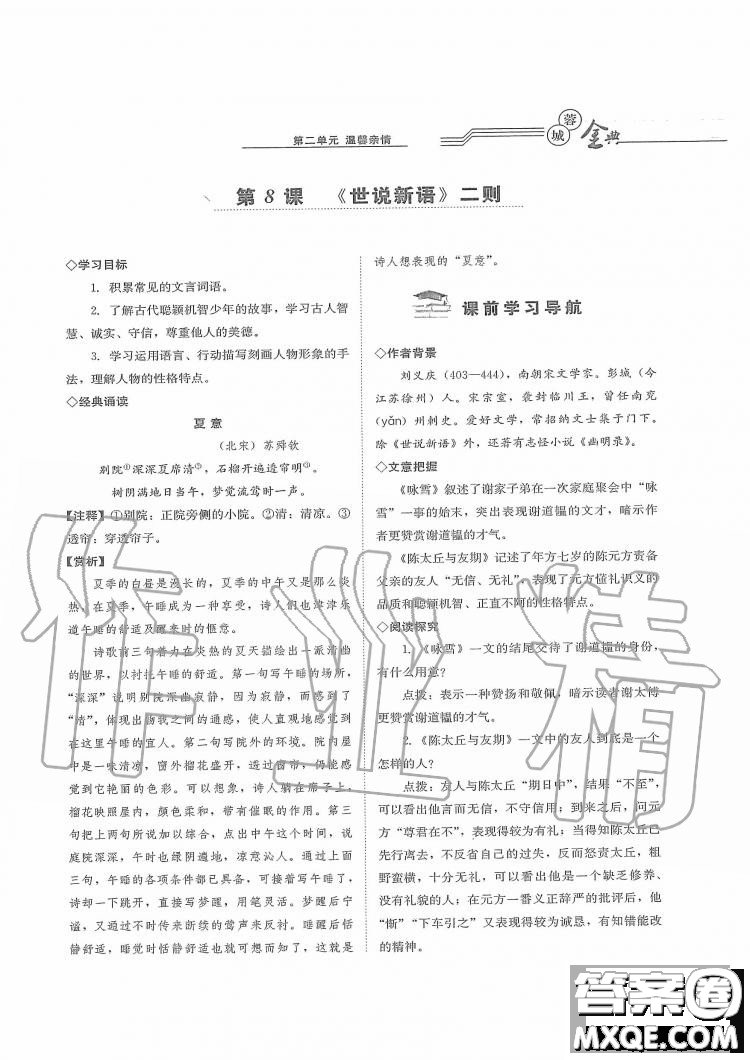 第二单元 温馨亲情
蓉城金典
第8课 《世说新语》二则
◇学习目标
1. 积累常见的文言词语。
2. 了解古代聪颖机智少年的故事，学习古人智
慧、诚实、守信，尊重他人的美德。
3. 学习运用语言、行动描写刻画人物形象的手
法，理解人物的性格特点。
◇经典诵读
夏意
（北宋）苏舜钦
别院①深深夏席清②，石榴开遍透帘明③。
树阴满地日当午，梦觉流莺时一声。
【注释】①别院：正院旁侧的小院。②清：清凉。③
透帘：穿透帘子。
【赏析】
夏季的白昼是漫长的，夏季的中午又是那么炎
热，在夏季，午睡成为一种享受，诗人们也津津乐
道午睡的舒适及醒来时的惬意。
诗歌前三句着力在炎热的夏天描绘出一派清幽
的世界，以衬托午睡的舒适。第一句写午睡的场所，
“深深”说明别院深幽寂静，因为寂静，而感到了
“清”，体现出触视之间的通感，使人直观地感觉到
在这里午睡的宜人。第二句写院外的环境。院内屋
中是一味清凉，窗外榴花盛开，透过窗帘，仍能感
觉到它艳丽的色彩。可以想象，诗人躺在席子上，
榴花映照屋内，颜色柔和，带有催眠的作用。第三
句把上两句所说加以综合，点出中午这个时间，说
庭院深深，午时也绿阴遍地，凉意沁人。通过上面
三句，午睡的各项条件都已具备，可接下来写午睡，
诗却一下跳开，直接写梦醒，用笔灵活。梦醒后宁
谧，又通过不时传来断续的莺声来反衬。睡醒后恬
静舒适，睡觉时恬静舒适也就可想而知了，这就是
诗人想表现的“夏意”。
课前学习导航
◇作者背景
刘义庆（403—444），南朝宋文学家。彭城（今
江苏徐州）人。宋宗室，袭封临川王，曾任南兖
（yǎn）州刺史。爱好文学，常招纳文士集于门下。
除《世说新语》外，还著有志怪小说《幽明录》。
◇文意把握
《咏雪》叙述了谢家子弟在一次家庭聚会中“咏
雪”一事的始末，突出表现谢道韫的文才，暗示作
者更赞赏谢道韫的才气。
《陈太丘与友期》记述了年方七岁的陈元方责备
父亲的友人“无信、无礼”，表现了元方懂礼识义的
品质和聪颖机智、正直不阿的性格特点。
◇阅读探究
1. 《咏雪》一文的结尾交待了谢道韫的身份，
有什么用意？
点拨：表示一种赞扬和敬佩，暗示读者谢太傅
更赞赏谢道韫的才气。
2. 《陈太丘与友期》一文中的友人到底是一个
怎样的人？
点拨：友人与陈太丘“期日中”，结果“不至”，
可以看出他言而无信，不守信用；到之后，问元
方“尊君在不”，表现得较为有礼；当得知陈太丘已
先行离去，不反省自己的过失，反而怒责太丘，粗
野蛮横，十分无礼，可以看出他是一个缺乏修养、
没有礼貌的人；在元方一番义正辞严的批评后，他
“惭”“下车引之”又表现得较为诚恳，有知错能改
的精神。
作业精
答案圈
MXQE.COM